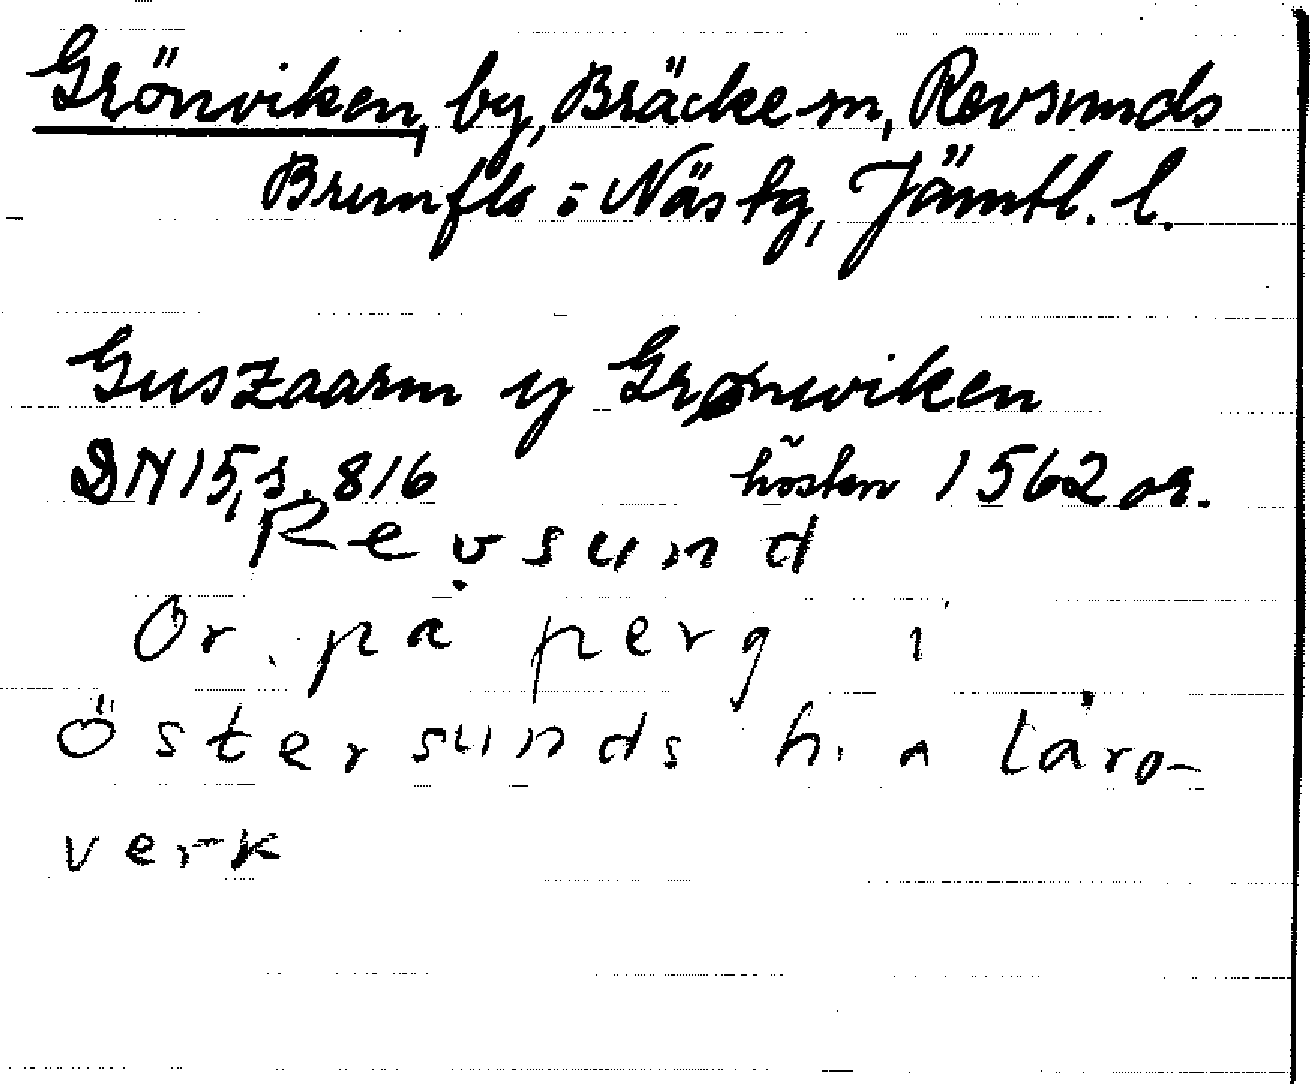 Grönviken, by, Bräcke sn, Revsunds
Brunflo o Näs tg, Jämtl. l.
Guszaarm y Grønwiken
DN 15, s. 816 hösten 1562 or.
Revsund
Or. på perg i
Östersunds h. a läro-
verk